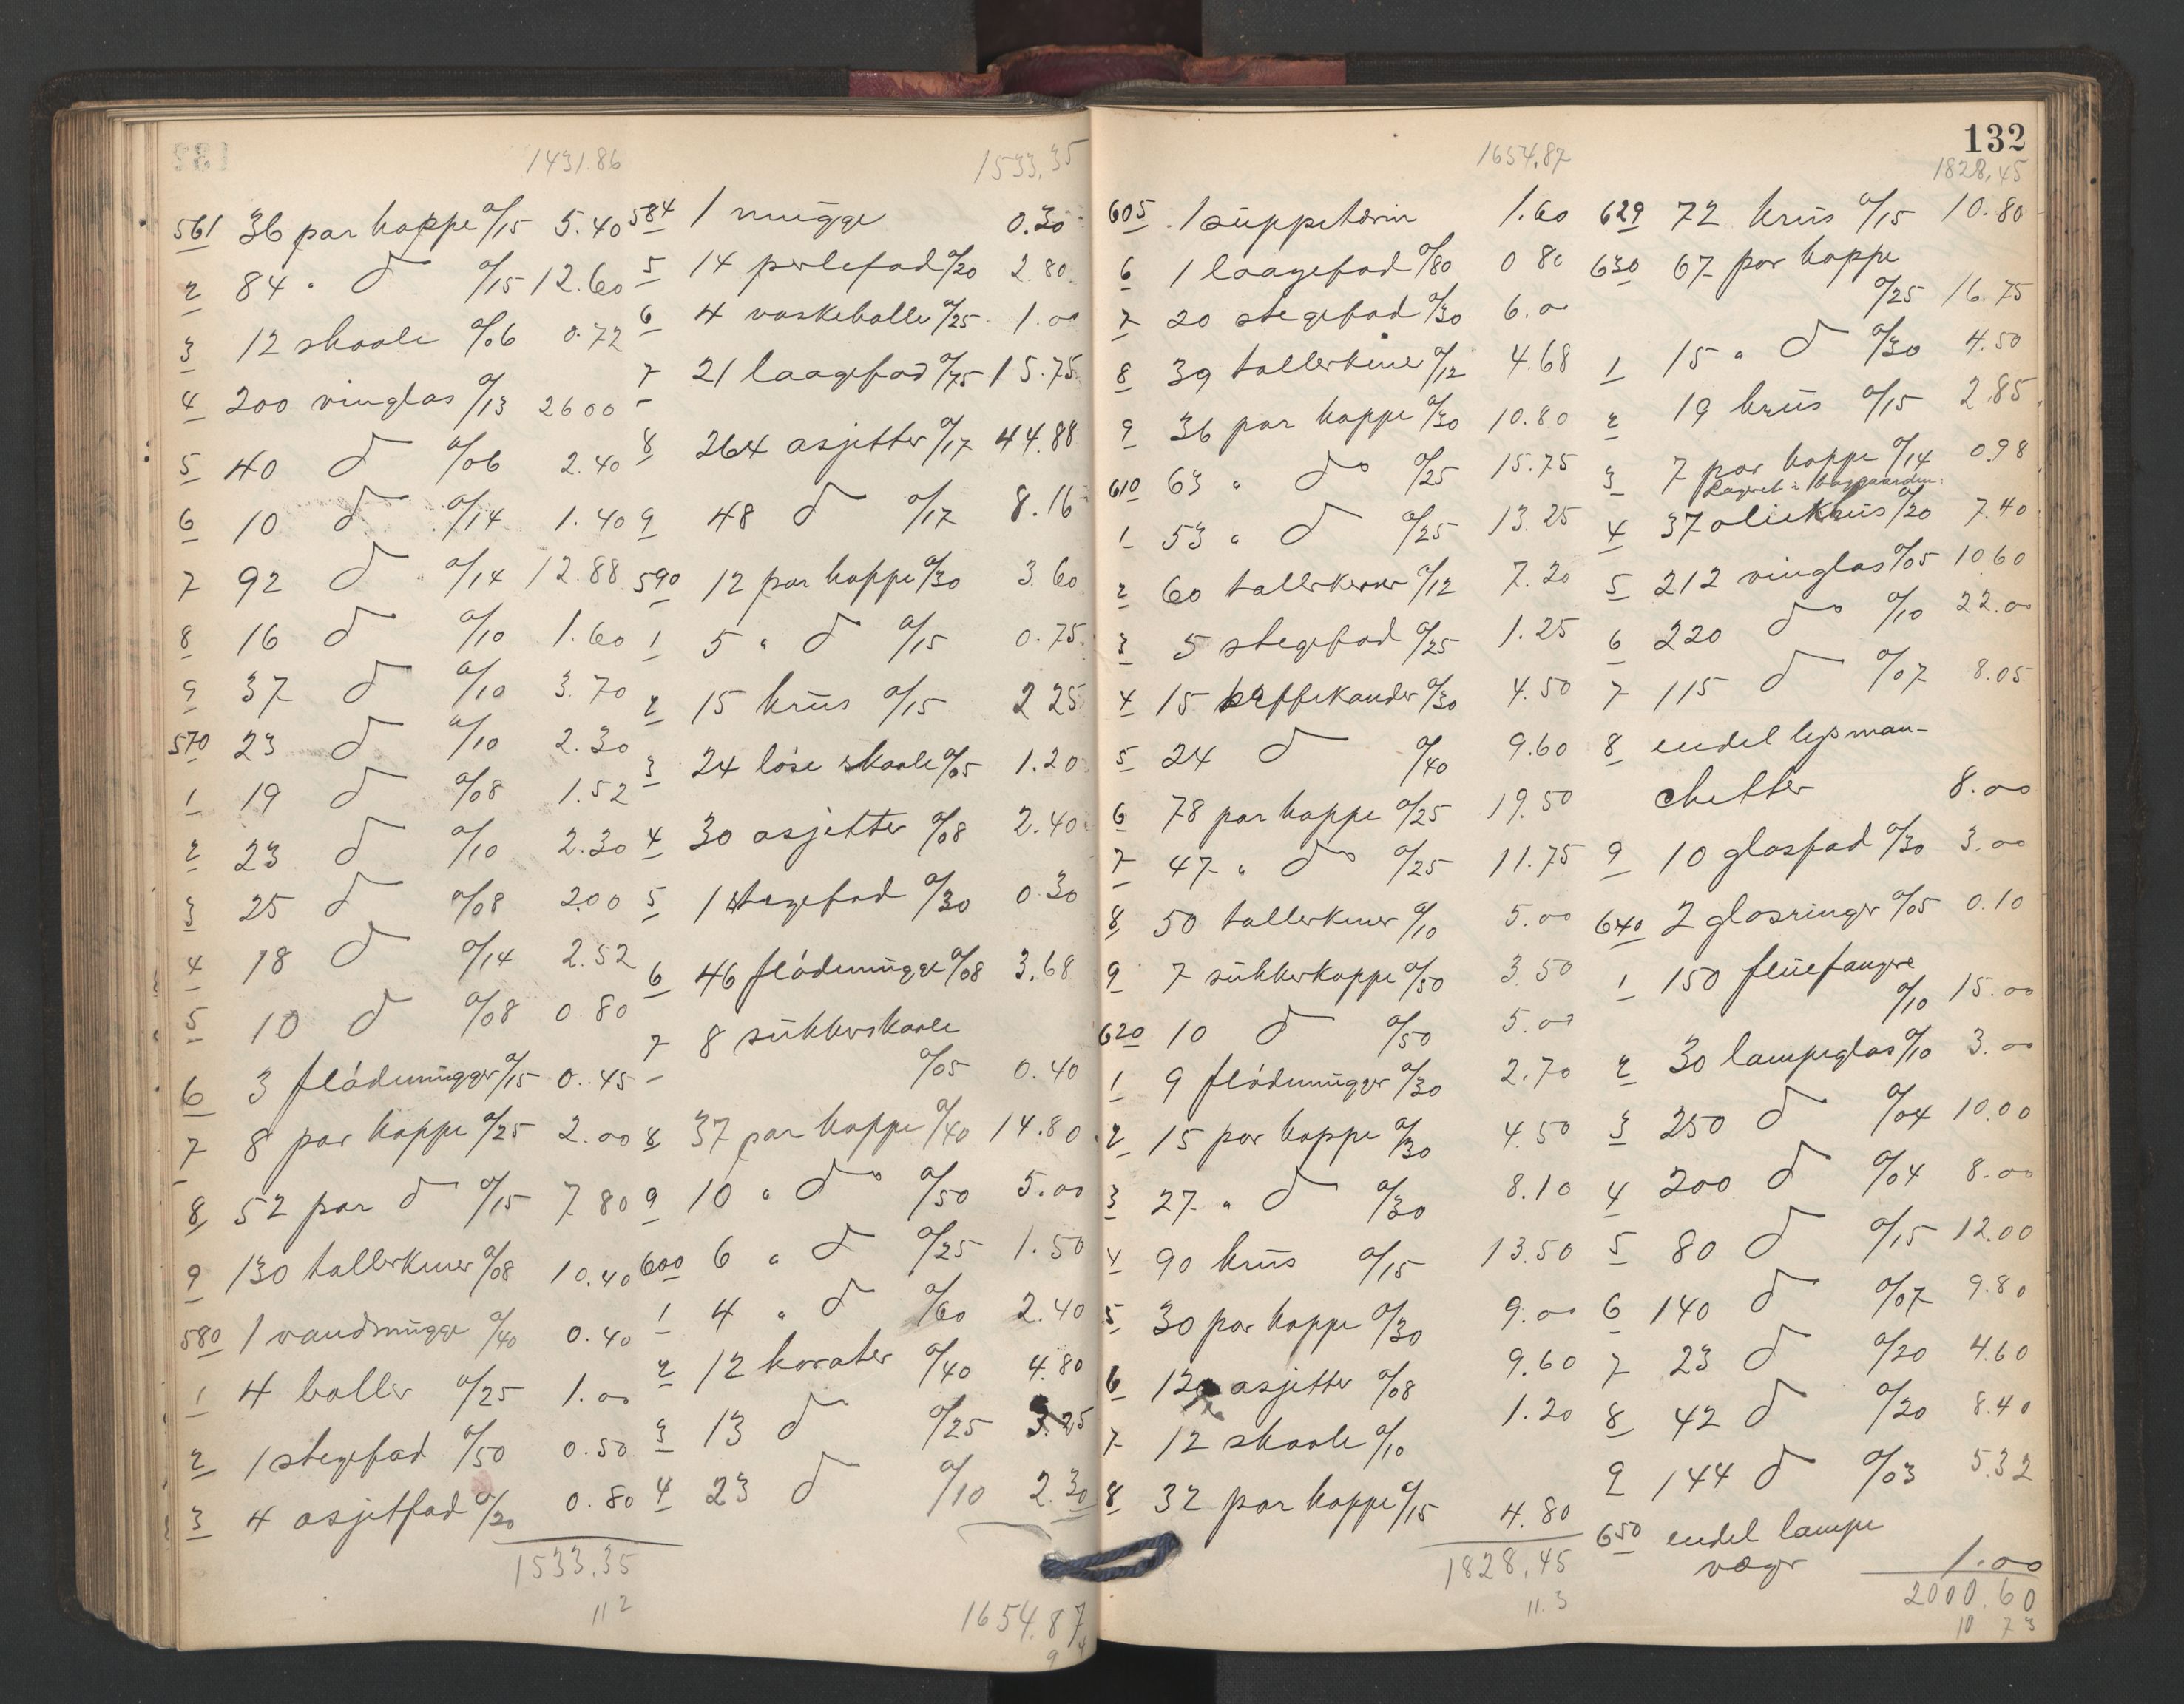 1431.86
561 36 par koppe a/15 5.40
2 84 " do a/15 12.60
3 12 skaale a/06 0.72
4 200 vinglas a/13 26 00
5 40 do a/06 2.40
6 10 do a/14 1.40
7 92 do a/14 12.88
8 16 do a/10 1.60
9 37 do a/10 3.70
570 23 do a/10 2.30
1 19 do a/08 1.52
2 23 do a/10 2.30
3 25 do a/08 2.00
4 18 do a/14 2.52
5 10 do a/08 0.80
6 3 flödemügger a/15 0.45
7 8 par koppe a/25 2.00
8 52 par do a/15 7.80
9 130 tallerkner a/08 10.40
580 1 vandmügge a/40 0.40
1 4 boller a/25 1.00
2 1 stegefad a/50 0.50
3 4 asjetfad a/20 0.80
1533.35
112
1533.35
584 1 mügge 0.30
5 14 perlefad a/20 2.80
6 4 vaskeballe a/25 1.00
7 21 laagefad a/75 15.75
8 264 asjetter a/17 44.88
9 48 do a/17 8.16
590 12 par koppe a/30 3.60
1 5 " do a/15 0.75
2 15 krüs a/15 2 25
3 24 löse skaale a/05 1.20
4 30 asjetter a/08 2.40
5 1 stegefad a/30 0.30
6 46 flödemügge a/08 3.68
7 8 sükkerskaale
a/05 0.40
8 37 par koppe a/40 14.80
9 10 " do a/50 5.00
600 6 " do a/25 1.50
1 4 " do a/60 2.40
2 12 karafler a/40 4.80
3 13 do a/25 3.25
4 23 do a/10 2.30
1654.87
9 4
132
1654.87
605 1 süppetærin 1.60
6 1 laagefad a/80 0 80
7 20 stegefad a/30 6.00
8 39 tallerkner a/12 4.68
9 36 par koppe a/30 10.80
610 63 " do a/25 15.75
1 53 " do a/25 13.25
2 60 tallerkener a/12 7.20
3 5 stegefad a/25 1.25
4 15 kaffekander a/30 4.50
5 24 do a/40 9.60
6 78 par koppe a/25 19.50
7 47 " do a/25 11.75
8 50 tallerkner a/10 5.00
9 7 sükkerkoppe a/50 3.50
620 10 do a/50 5.00
1 9 flödemügger a/30 2.70
2 15 par koppe a/30 4.50
3 27 " do a/30 8.10
4 90 krüs a/15 13.50
5 30 par koppe a/30 9.00
6 120 asjetter a/08 9.60
7 12 skaale a/10 1.20
8 32 par koppe a/15 4.80
1828.45
11.3
1828.45
629 72 krüs a/15 10.80
630 67 par koppe
a/25 16.75
1 15 " do a/30 4.50
2 19 krüs a/15 2.85
3 7 par koppe a/14 0.98
Lageret i baggaarden:
4 37 oliekrüs a/20 7.40
5 212 vinglas a/05 10.60
6 220 do a/10 22.00
7 115 do a/07 8.05
8 endel lysman-
chetter 8.00
9 10 glasfad a/30 3.00
640 2 glasringer a/05 0.10
1 150 flüefangre
a/10 15.00
2 30 lampeglas a/10 3.00
3 250 do a/04 10.00
4 200 do a/04 8.00
5 80 do a/15 12.00
6 140 do a/07 9.80
7 23 do a/20 4.60
8 42 do a/20 8.40
9 144 do a/03 5.32
650 endel lampe
væger 1.00
2000.60
10 7 3